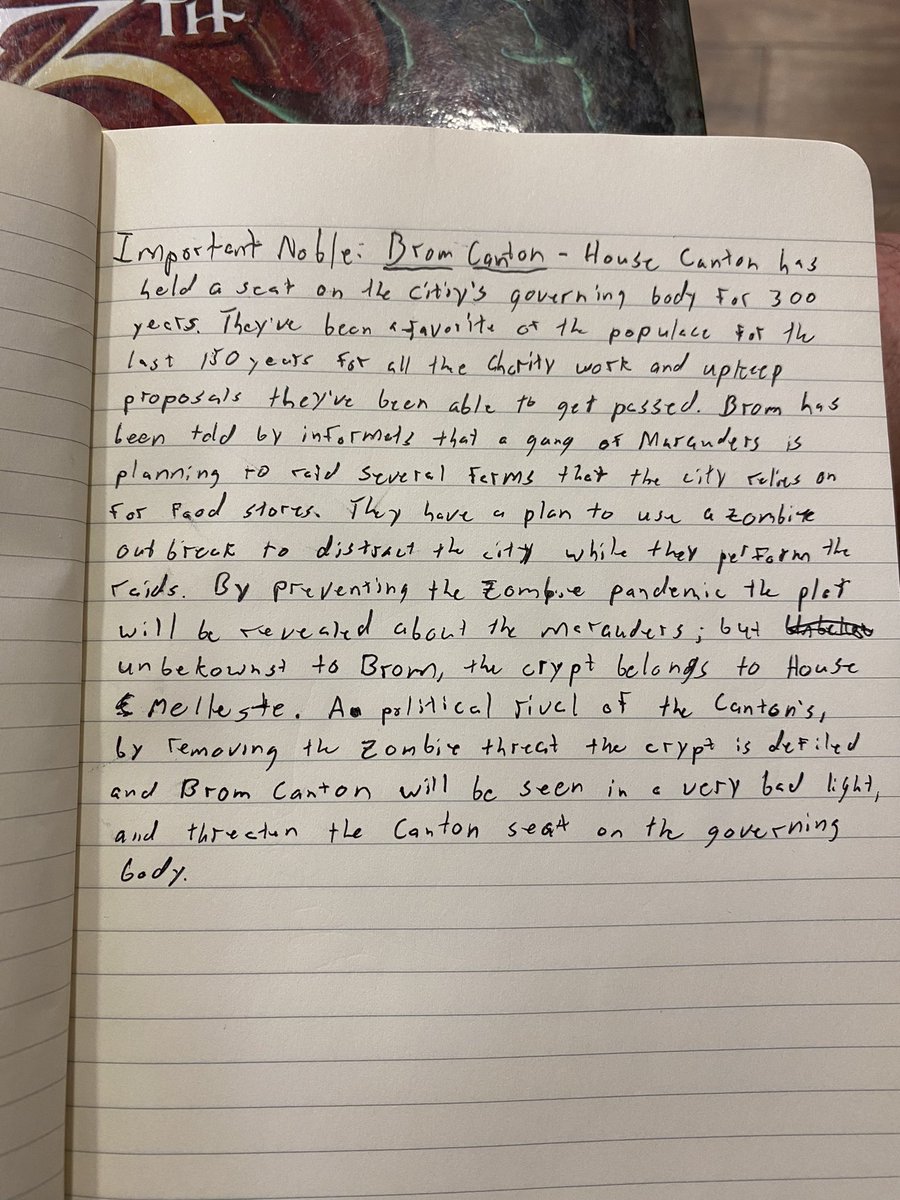 TH
Important Noble: Brom Canton - House Canton has
held a seat on the citiy's governing body for 300
years. They've been a favorite of the populace for the
last 150 years for all the charity work and upkeep
proposals they've been able to get passed. Brom has
been told by informets that a gang of Marauders is
planning to raid several farms that the city relies on
for food stores. They have a plan to use a zombie
outbreak to distract the city while they perform the
raids. By preventing the zombie pandemic the plot
will be revealed about the marauders; but
unbekownst to Brom, the crypt belongs to House
Melleste. A political rival of the Canton's,
by removing the zombie threat the crypt is defiled
and Brom Canton will be seen in a very bad light,
and threatun the Canton seat on the governing
body.